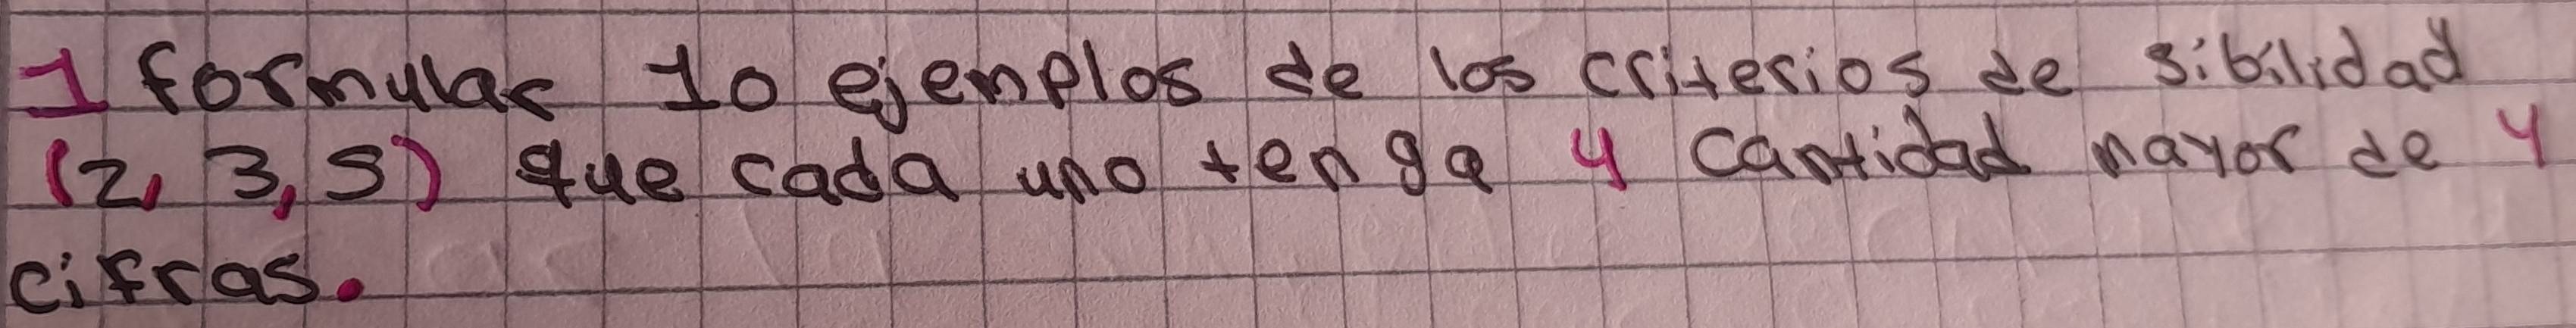 1 formular 10 ejemplos de los criterios de sibilidad
(2, 3, 5) que cada uno tenga 4 cantidad mayor de 4
cifras.